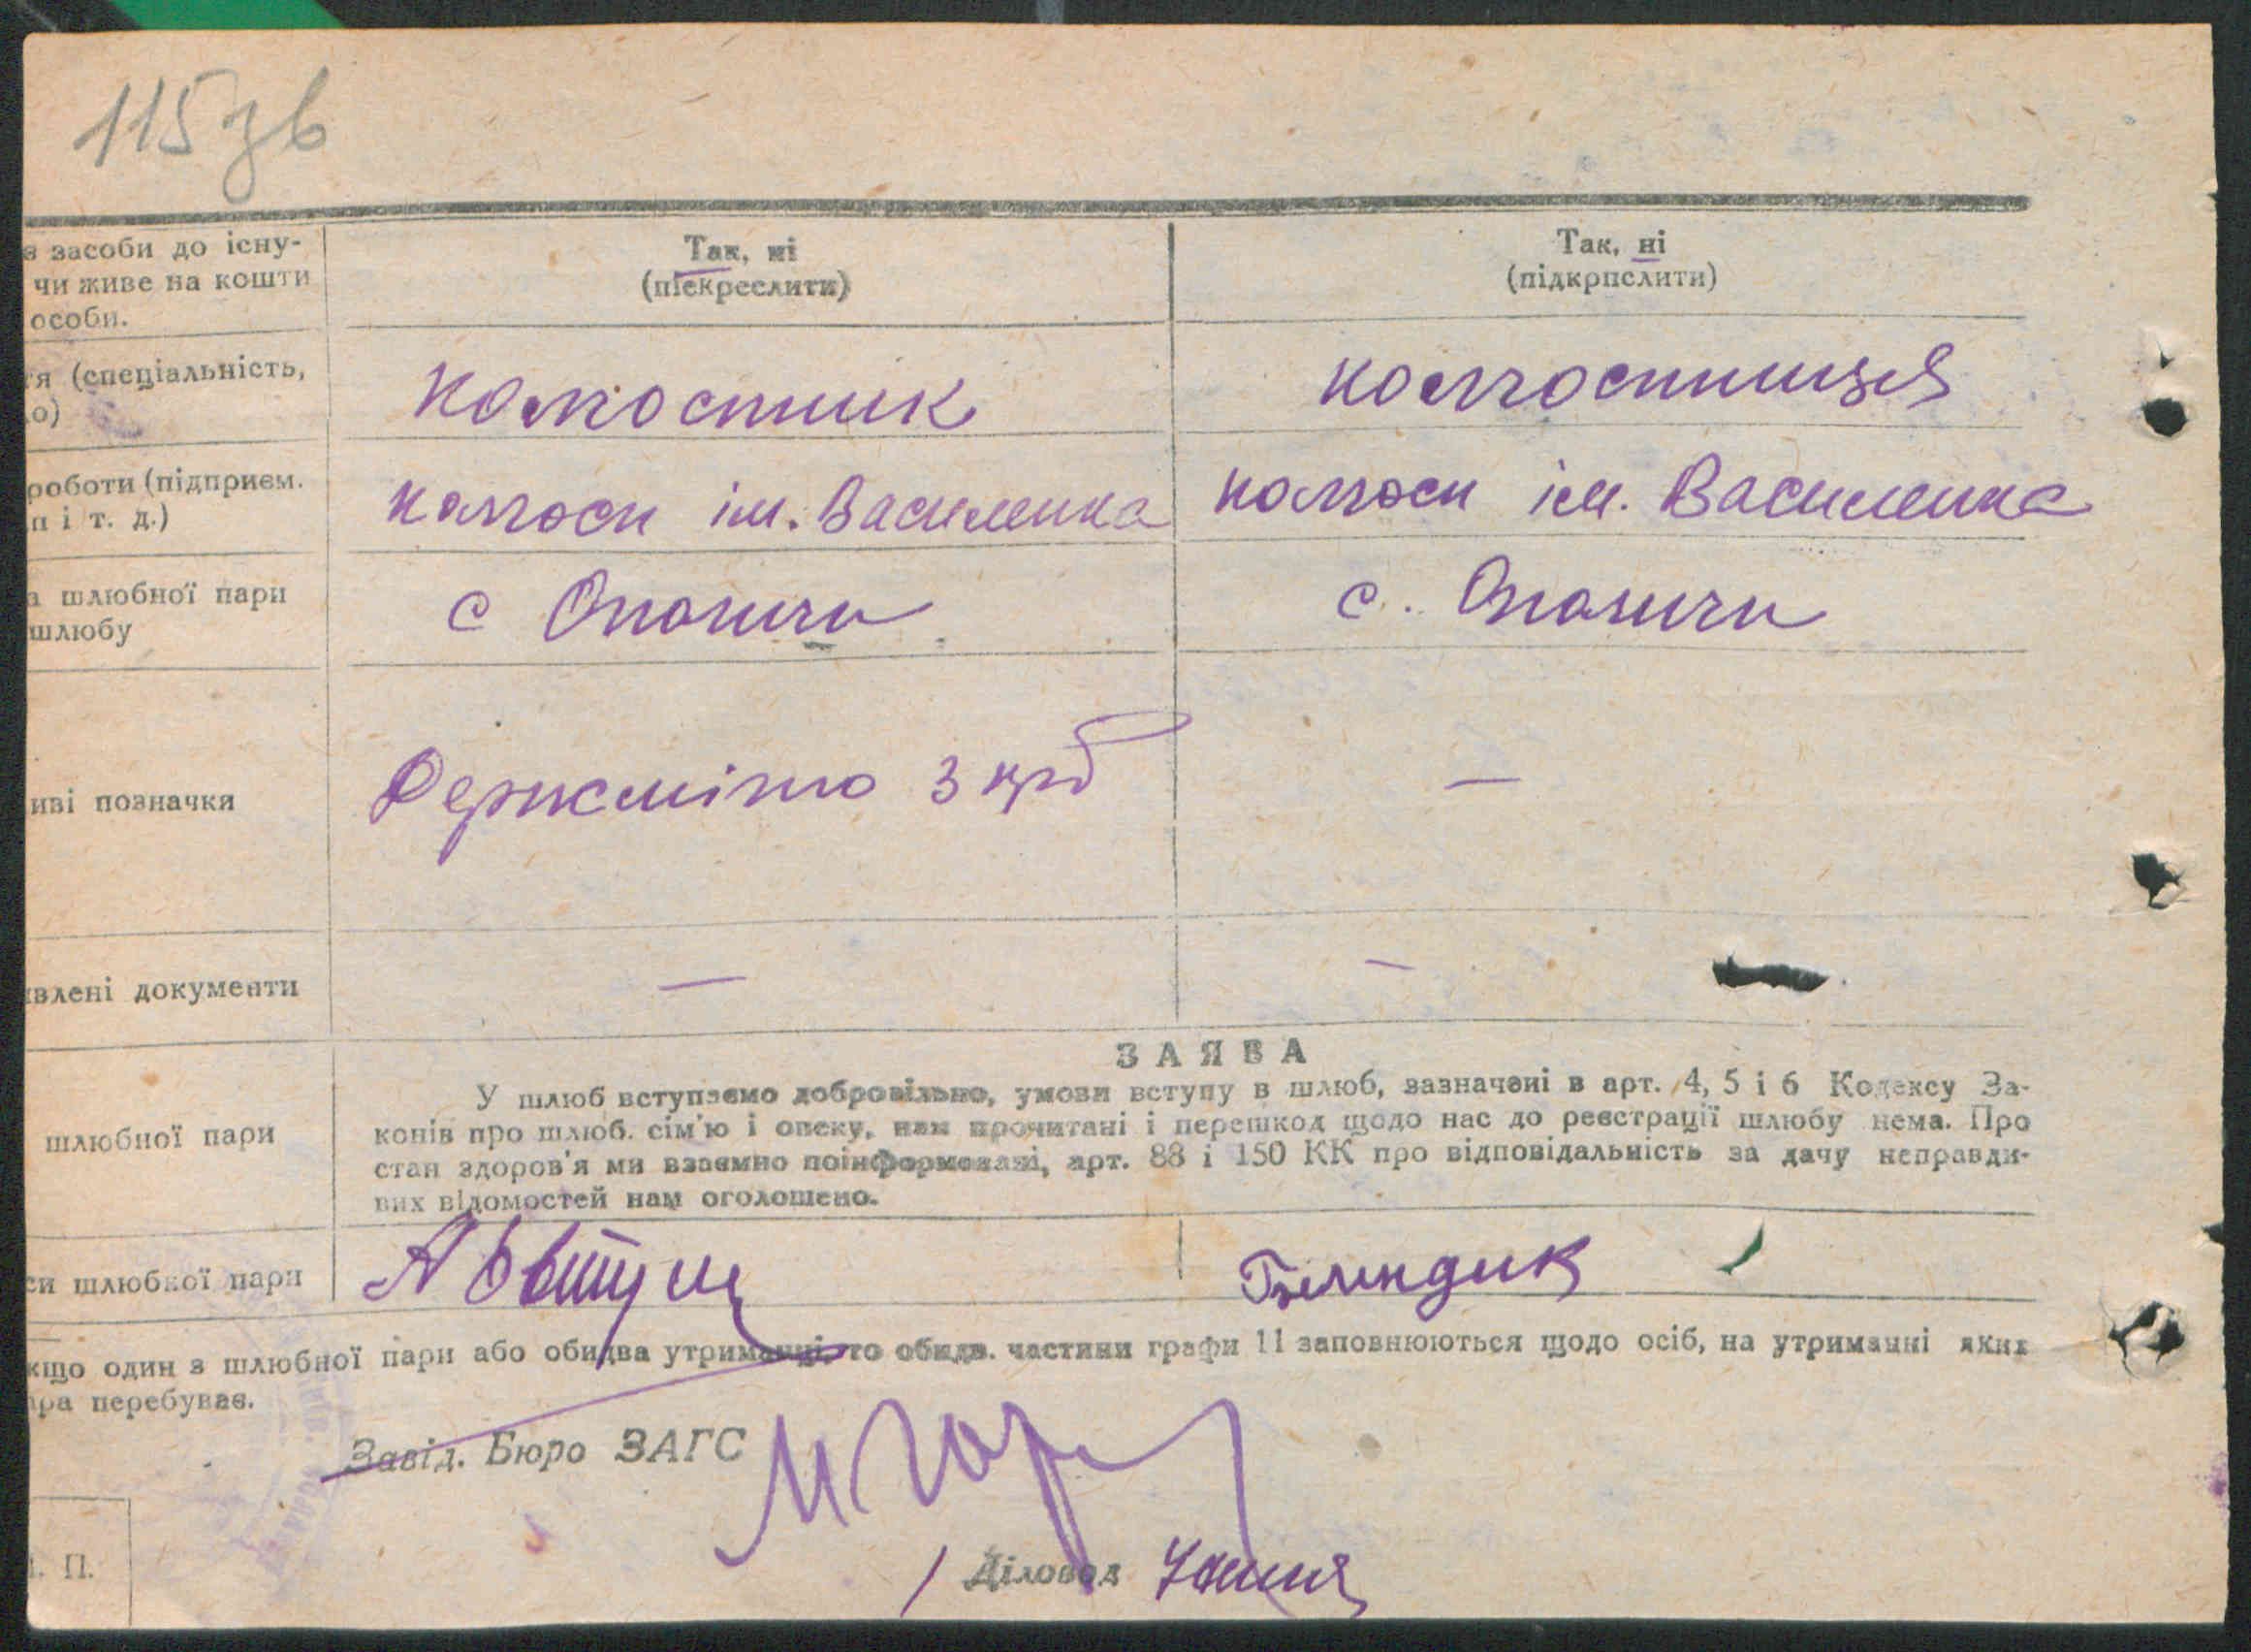 115 зв
в засоби до існу-
чи живе на кошти
особи.
Так, ні
(піекреслити)
Так, ні
(підкрпслити)
тя (спеціальність,
о)
колгоспник
колгоспниця
роботи (підприєм.
п і т. д.)
колгосп ім. Василенка
колгосп ім. Василенка
а шлюбної пари
шлюбу
с Опачичи
с. Опачичи
иві позначки
Держмито 3 крб
—
явлені документи
—
—
ЗАЯВА
шлюбної пари
У шлюб вступаємо добровільно, умови вступу в шлюб, зазначені в арт. 4, 5 і 6 Кодексу За-
конів про шлюб. сім'ю і опеку, нам прочитані і перешкод щодо нас до реєстрації шлюбу нема. Про
стан здоров'я ми взаємно поінформовані, арт. 88 і 150 КК про відповідальність за дачу неправди-
вих відомостей нам оголошено.
си шлюбної пари
кщо один з шлюбної пари або обидва утриманці, то обидв. частини графи 11 заповнюються щодо осіб, на утриманні яких
ара перебуває.
Завід. Бюро ЗАГС
Діловод
П.